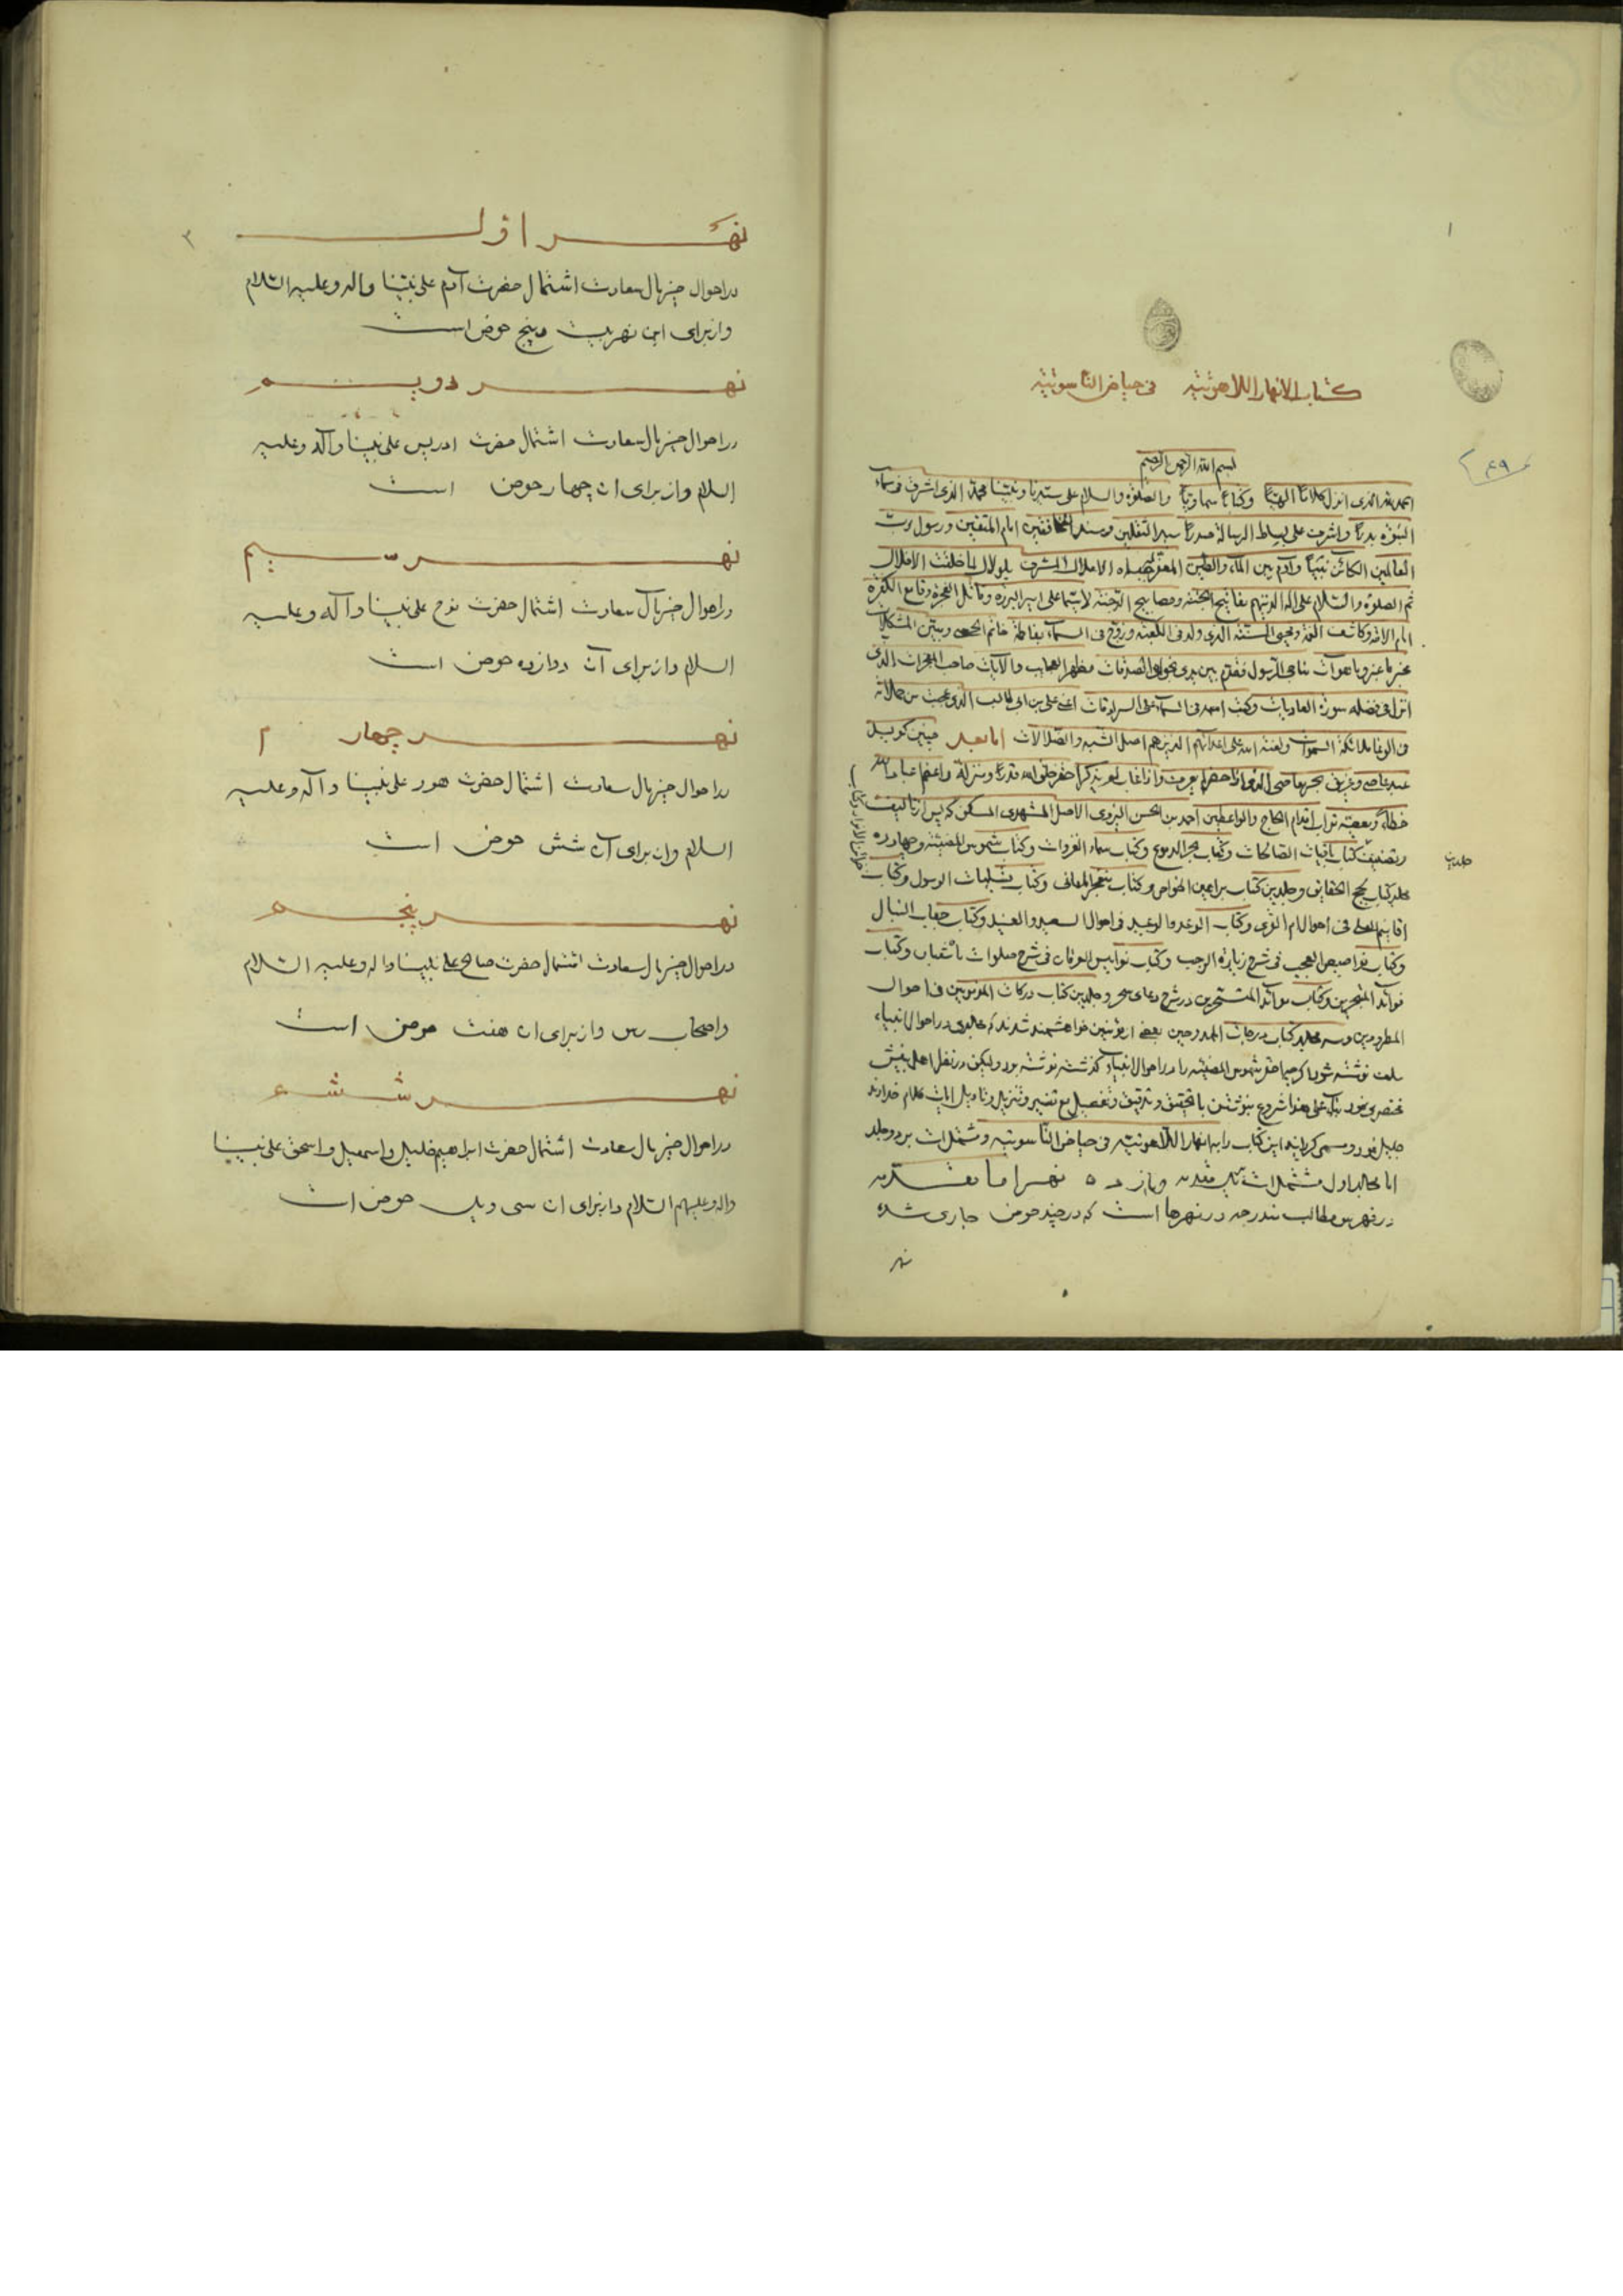 كتاب الانهار اللاهوتيه فی حیاض الناسوتیه
بسم الله الرحمن الرحیم
الحمد لله الذی انزل کلاماً الهیّاً وکتاباً سماویّاً والصلوة والسلام علی سیدنا ونبینا محمد الذی اشرق فی سماء
النبوة بدراً واشرف علی بساط الرسالة صدراً سید الثقلین وسند الخافقین امام المتقین ورسول رب
العالمین الکائن نبیّاً وآدم بین الماء والطین المشرف بلولاك لما خلقت الافلاك
ثم الصلوة والسلام علی آله الذینهم مفاتیح الجنة ومصابیح الدجنة لاسیما علی امیر البررة وقاتل الفجرة وقامع الکفرة
امام الامة وکاشف الغمة ومحیی السنة الذی ولد فی الکعبة وزوّج فی السماء بفاطمة خاتم ومبین المشکلات
الرسول فقدم بین یدی نجواه الصدقات مظهر العجایب والآیات صاحب المعجزات الذی
انزل فی فضله سورة العادیات وکتب اسمه فی السماء علی السرادقات اعنی علی بن ابی طالب الذی عجبت من حملاته
فی الوغا ملائکة السموات ولعنة الله علی اعدائهم الذین هم اصل الشبه والضلالات اما بعد چنین کوید
عبد عاصی وغریق بحر معاصی خلق الله قدراً ومنزلة واعظم عباد الله
خطاءً ومعصیة تراب اقدام الحاج والواعظین احمد بن الحسن الیزدی الاصل المشهدی المسکن که پس از تالیف
وتصنیف کتاب باقیات الصالحات وکتاب بحر الدموع وکتاب سماء الغزوات وکتاب شموس المضیئه وچهارده
جلدین
مجلد کتاب لجج الحقایق وجلدین کتاب براهین الخواص وکتاب متفجر المعانی وکتاب تسلیمات الرسول وکتاب
فی احوال ام القری وکتاب الوعد والوعید فی احوال السعید والعنید وکتاب
وکتاب العجب فی شرح زیارة الرجب وکتاب نوامیس العرفان فی شرح صلوات شعبان وکتاب
فوائد المتبحرین وکتاب موائد المتسحرین در شرح دعای سحر وجلدین کتاب درکات المرتدین فی احوال
المطرودین وسه مجلد کتاب درجات الممدوحین بعضی از مؤمنین خواهشمند شدند که مجلدی در احوال انبیاء
سلف نوشته شود اکر چه احقر شموس المضیئه را در احوال انبیاء کذشته نوشته بود ولیکن در نظر اهل بینش
مختصری نمود شروع بنوشتن با تحقیق وتدقیق وتفصیل مع تفسیر وتنزیل وتاویل آیات کلام خداوند
جلیل نمود ومسمی کردانید این کتاب را به انهار اللاهوتیه فی حیاض الناسوتیه ومشتمل است بر دو جلد
اما مجلد اول مشتمل است بیك مقدمه ویازده نهر اما مقدمه
در فهرس مطالب مندرجه در نهرها است که در چند حوض جاری شده
نهر اوّل
در احوال خیر مال سعادت اشتمال حضرت آدم علی نبینا واله وعلیه السلام
واز برای این نهر بیست وپنج حوض است
نهر دویم
در احوال خیر مال سعادت اشتمال حضرت ادریس علی نبینا وآله وعلیه
السلام واز برای ان چهار حوض است
نهر سیم
در احوال خیر مآل سعادت اشتمال حضرت نوح علی نبینا وآله وعلیه
السلام واز برای آن دوازده حوض است
نهر چهارم
در احوال خیر مال سعادت اشتمال حضرت هود علی نبینا وآله وعلیه
السلام واز برای آن شش حوض است
نهر پنجم
در احوال خیر مال سعادت اشتمال حضرت صالح علی نبینا واله وعلیه السلام
واصحاب رس واز برای ان هفت حوض است
نهر ششم
در احوال خیر مال سعادت اشتمال حضرت ابراهیم خلیل واسمعیل واسحق علی نبینا
واله وعلیهم السلام واز برای ان سی ویك حوض است